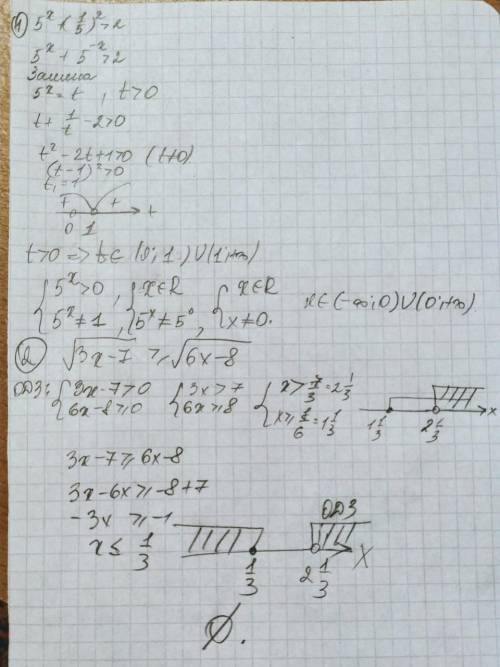 ① 5^x + (1/5)^x > 2
5^x + 5^-x > 2
Замена
5^x = t , t > 0
t + 1/t - 2 > 0
t² - 2t + 1 > 0 (t≠0)
(t - 1)² > 0
t₁ = 1
+ + t
0 1
t > 0 => t ∈ (0; 1) ∪ (1; +∞)
{ 5^x > 0, { x ∈ R { x ∈ R
{ 5^x ≠ 1, { 5^x ≠ 5^0, { x ≠ 0. x ∈ (-∞; 0) ∪ (0; +∞)
② √3x-7 ≥ √6x-8
ОДЗ: { 3x-7 > 0 { 3x > 7 { x > 7/3 = 2 1/3
{ 6x-8 ≥ 0 { 6x ≥ 8 { x ≥ 8/6 = 1 1/3
1 1/3 2 1/3 x
3x - 7 ≥ 6x - 8
3x - 6x ≥ -8 + 7
-3x ≥ -1
x ≤ 1/3
ОДЗ
1/3 2 1/3 X
∅.